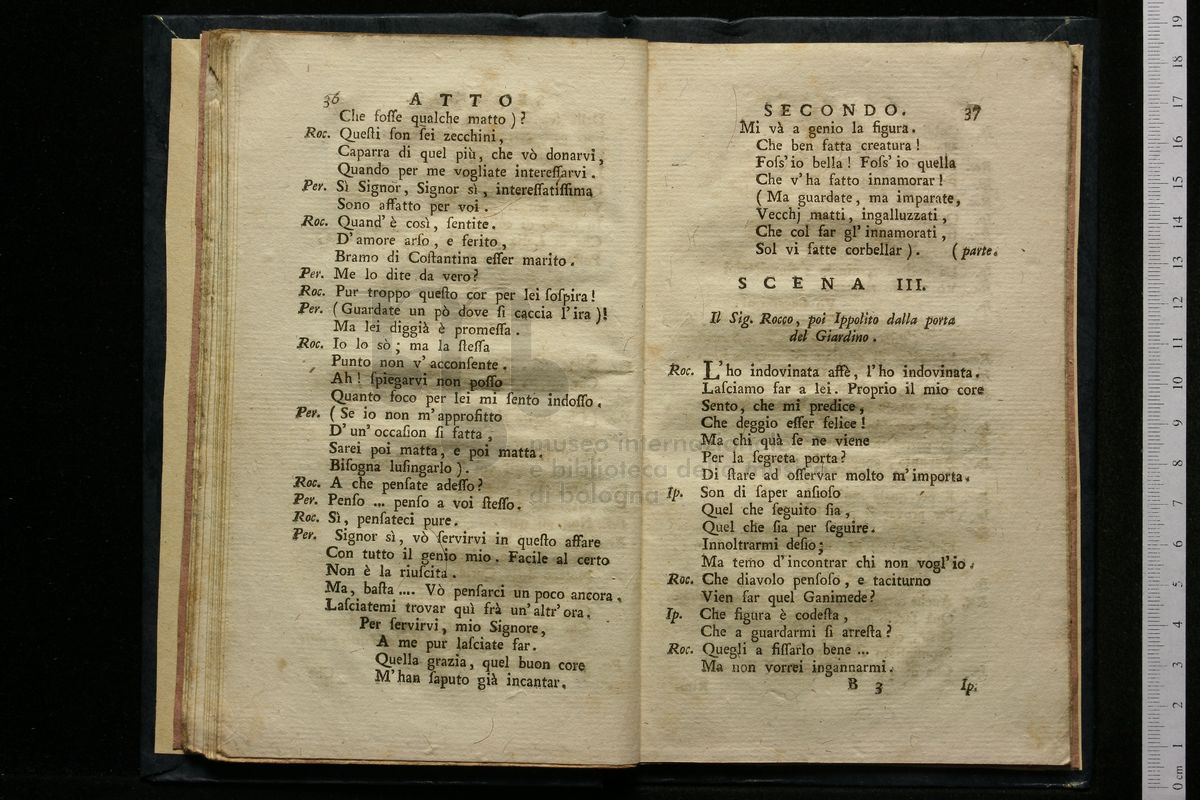 36 ATTO
Che foſſe qualche matto ) ?
Roc. Queſti ſon ſei zecchini,
Caparra di quel più, che vò donarvi,
Quando per me vogliate intereſſarvi.
Per. Sì Signor, Signor sì, intereſſatiſſima
Sono affatto per voi.
Roc. Quand' è così, ſentite.
D' amore arſo, e ferito,
Bramo di Coſtantina eſſer marito.
Per. Me lo dite da vero?
Roc. Pur troppo queſto cor per lei ſoſpira!
Per. ( Guardate un pò dove ſi caccia l' ira )!
Ma lei diggià è promeſſa.
Roc. Io lo sò; ma la ſteſſa
Punto non v' acconſente.
Ah! ſpiegarvi non poſſo
Quanto foco per lei mi ſento indoſſo.
Per. ( Se io non m' approfitto
D' un' occaſion ſi fatta,
Sarei poi matta, e poi matta.
Biſogna luſingarlo ).
Roc. A che penſate adeſſo?
Per. Penſo ... penſo a voi ſteſſo.
Roc. Sì, penſateci pure.
Per. Signor sì, vò ſervirvi in queſto affare
Con tutto il genio mio. Facile al certo
Non è la riuſcita.
Ma, baſta .... Vò penſarci un poco ancora.
Laſciatemi trovar quì frà un' altr' ora.
Per ſervirvi, mio Signore,
A me pur laſciate far.
Quella grazia, quel buon core
M' han ſaputo già incantar.
SECONDO. 37
Mi và a genio la figura.
Che ben fatta creatura!
Foſs' io bella! Foſs' io quella
Che v' ha fatto innamorar!
( Ma guardate, ma imparate,
Vecchj matti, ingalluzzati,
Che col far gl' innamorati,
Sol vi fatte corbellar ). ( parte.
SCENA III.
Il Sig. Rocco, poi Ippolito dalla porta
del Giardino.
Roc. L' ho indovinata affè, l' ho indovinata.
Laſciamo far a lei. Proprio il mio core
Sento, che mi predice,
Che deggio eſſer felice!
Ma chi quà ſe ne viene
Per la ſegreta porta?
Di ſtare ad oſſervar molto m' importa.
Ip. Son di ſaper anſioſo
Quel che ſeguito ſia,
Quel che ſia per ſeguire.
Innoltrarmi deſio;
Ma temo d' incontrar chi non vogl' io.
Roc. Che diavolo penſoſo, e taciturno
Vien far quel Ganimede?
Ip. Che figura è codeſta,
Che a guardarmi ſi arreſta?
Roc. Quegli a fiſſarlo bene ...
Ma non vorrei ingannarmi.
B 3 Ip.